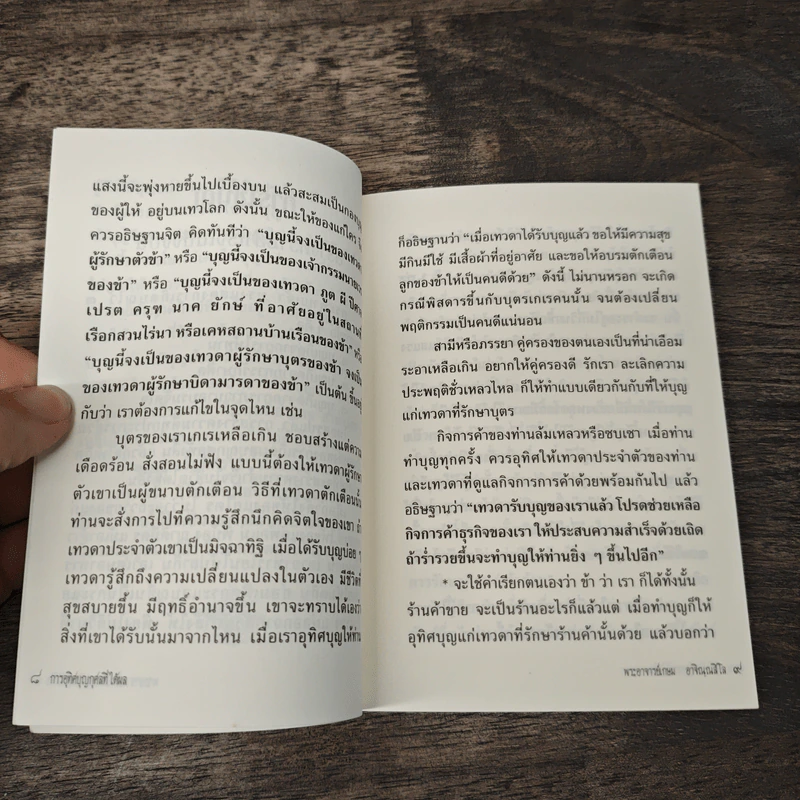 แสงนี้จะพุ่งหายขึ้นไปเบื้องบน แล้วสะสมเป็นกองบุญ
ของผู้ให้ อยู่บนเทวโลก ดังนั้น ขณะให้ของแก่ใคร
ควรอธิษฐานจิต คิดทันทีว่า “บุญนี้จงเป็นของเทวดา
ผู้รักษาตัวข้า” หรือ “บุญนี้จงเป็นของเจ้ากรรมนายเวร
ของข้า” หรือ “บุญนี้จงเป็นของเทวดา ภูต ผี ปีศาจ
เปรต ครุฑ นาค ยักษ์ ที่อาศัยอยู่ในสถานที่
เรือกสวนไร่นา หรือเคหสถานบ้านเรือนของข้า” หรือ
“บุญนี้จงเป็นของเทวดาผู้รักษาบุตรของข้า จงเป็น
ของเทวดาผู้รักษาบิดามารดาของข้า” เป็นต้น ขึ้นอยู่
กับว่า เราต้องการแก้ไขในจุดไหน เช่น
บุตรของเราเกเรเหลือเกิน ชอบสร้างแต่ความ
เดือดร้อน สั่งสอนไม่ฟัง แบบนี้ต้องให้เทวดาผู้รักษา
ตัวเขาเป็นผู้ขนาบตักเตือน วิธีที่เทวดาตักเตือนนั้น
ท่านจะสั่งการไปที่ความรู้สึกนึกคิดจิตใจของเขา ถ้า
เทวดาประจำตัวเขาเป็นมิจฉาทิฐิ เมื่อได้รับบุญบ่อย ๆ
เทวดารู้สึกถึงความเปลี่ยนแปลงในตัวเอง มีชีวิตที่
สุขสบายขึ้น มีฤทธิ์อำนาจขึ้น เขาจะทราบได้เองว่า
สิ่งที่เขาได้รับนั้นมาจากไหน เมื่อเราอุทิศบุญให้ท่าน
๘ การอุทิศบุญกุศลที่ได้ผล
ก็อธิษฐานว่า “เมื่อเทวดาได้รับบุญแล้ว ขอให้มีความสุข
มีกินมีใช้ มีเสื้อผ้าที่อยู่อาศัย และขอให้อบรมตักเตือน
ลูกของข้าให้เป็นคนดีด้วย” ดังนี้ ไม่นานหรอก จะเกิด
กรณีพิสดารขึ้นกับบุตรเกเรคนนั้น จนต้องเปลี่ยน
พฤติกรรมเป็นคนดีแน่นอน
สามีหรือภรรยา คู่ครองของตนเองเป็นที่น่าเอือม
ระอาเหลือเกิน อยากให้คู่ครองดี รักเรา ละเลิกความ
ประพฤติชั่วเหลวไหล ก็ให้ทำแบบเดียวกันกับที่ให้บุญ
แก่เทวดาที่รักษาบุตร
กิจการค้าของท่านล้มเหลวหรือซบเซา เมื่อท่าน
ทำบุญทุกครั้ง ควรอุทิศให้เทวดาประจำตัวของท่าน
และเทวดาที่ดูแลกิจการการค้าด้วยพร้อมกันไป แล้ว
อธิษฐานว่า “เทวดารับบุญของเราแล้ว โปรดช่วยเหลือ
กิจการค้าธุรกิจของเรา ให้ประสบความสำเร็จด้วยเถิด
ถ้าร่ำรวยขึ้นจะทำบุญให้ท่านยิ่ง ๆ ขึ้นไปอีก”
* จะใช้คำเรียกตนเองว่า ข้า ว่า เรา ก็ได้ทั้งนั้น
ร้านค้าขาย จะเป็นร้านอะไรก็แล้วแต่ เมื่อทำบุญก็ให้
อุทิศบุญแก่เทวดาที่รักษาร้านค้านั้นด้วย แล้วบอกว่า
พระอาจารย์เกษม อาจิณฺณสีโล ๙